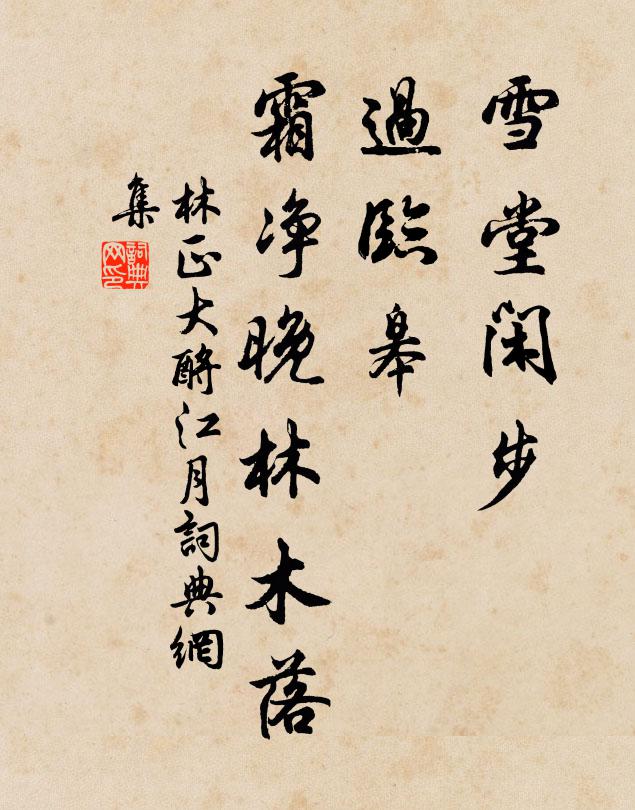 雪堂閑步
過臨皋
霜净晚林木落
林正大酹江月詞典網
集
詞典
网印